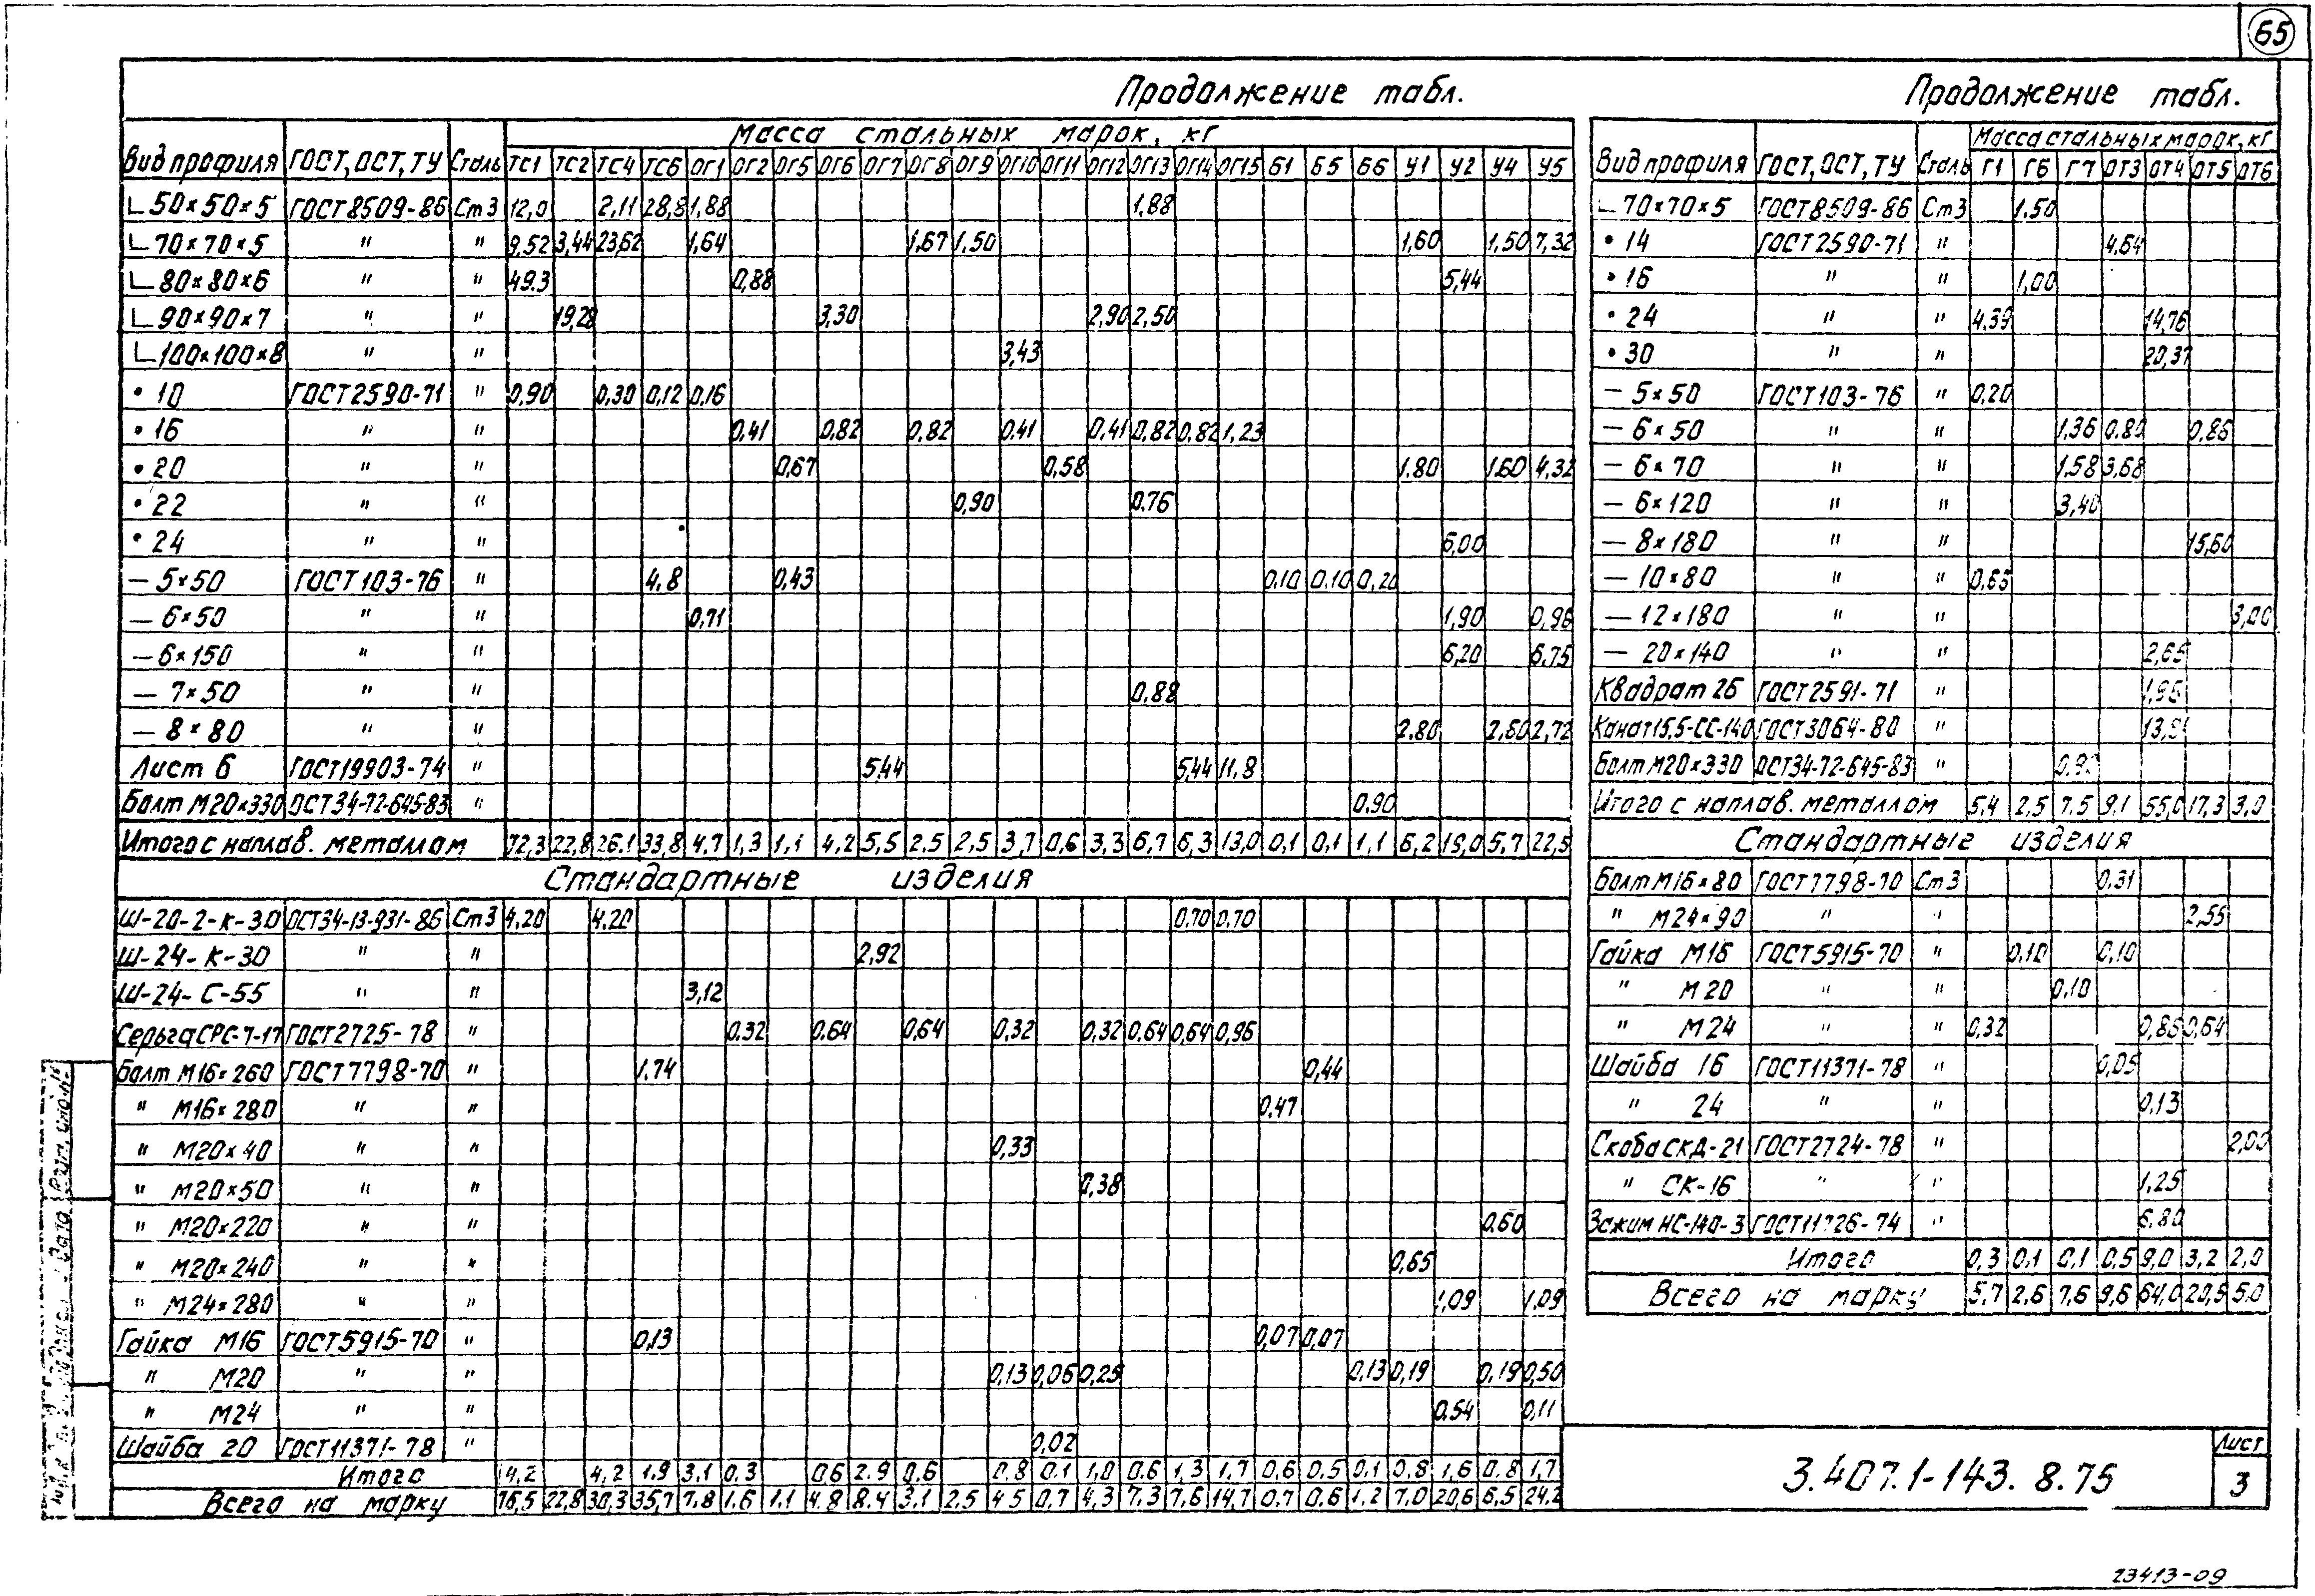 65
Продолжение табл.
Вид профиля ГОСТ, ОСТ, ТУ Сталь Масса стальных марок, кг
ТС1 ТС2 ТС4 ТС6 ОГ1 ОГ2 ОГ5 ОГ6 ОГ7 ОГ8 ОГ9 ОГ10 ОГ11 ОГ12 ОГ13 ОГ14 ОГ15 Б1 Б5 Б6 У1 У2 У4 У5
∟50×50×5 ГОСТ 8509-86 Ст3 12,0 2,11 28,8 1,88 1,88
∟70×70×5 " " 9,52 3,44 23,62 1,64 1,67 1,50 1,60 1,50 7,32
∟80×80×6 " " 49.3 0,88 5,44
∟90×90×7 " " 19,28 3,30 2,90 2,50
∟100×100×8 " " 3,43
• 10 ГОСТ 2590-71 " 0,90 0,30 0,12 0,16
• 16 " " 0,41 0,82 0,82 0,41 0,41 0,82 0,82 1,23
• 20 " " 0,67 0,58 1,80 1,60 4,32
• 22 " " 0,90 0.76
• 24 " " 6,00
— 5×50 ГОСТ 103-76 " 4,8 0,43 0,10 0,10 0,20
— 6×50 " " 0,71 1,90 0,96
— 6×150 " " 6,20 6,75
— 7×50 " " 0,88
— 8×80 " " 2,80 2,60 2,72
Лист 6 ГОСТ 19903-74 " 5,44 5,44 11,8
Болт М20×330 ОСТ 34-72-645-83 " 0,90
Итого с наплав. металлом 72,3 22,8 26.1 33,8 4,7 1,3 1,1 4,2 5,5 2,5 2,5 3,7 0,6 3,3 6,7 6,3 13,0 0,1 0,1 1,1 6,2 19,0 5,7 22,5
Стандартные изделия
Ш-20-2-К-30 ОСТ 34-13-931-86 Ст3 4,20 4,20 0,70 0,70
Ш-24-К-30 " " 2,92
Ш-24-С-55 " " 3,12
Серьга СРС-7-17 ГОСТ 2725-78 " 0,32 0,64 0,64 0,32 0,32 0,64 0,64 0,96
Болт М16×260 ГОСТ 7798-70 " 1,74 0,44
" М16×280 " " 0,47
" М20×40 " " 0,33
" М20×50 " " 0,38
" М20×220 " " 0,60
" М20×240 " " 0,65
" М24×280 " " 1,09 1,09
Гайка М16 ГОСТ 5915-70 " 0,13 0,07 0,07
" М20 " " 0,13 0,06 0,25 0,13 0,19 0,19 0,50
" М24 " " 0,54 0,11
Шайба 20 ГОСТ 11371-78 " 0,02
Итого 4,2 4,2 1,9 3,1 0,3 0,6 2,9 0,6 0,8 0,1 1,0 0,6 1,3 1,7 0,6 0,5 0,1 0,8 1,6 0,8 1,7
Всего на марку 76,5 22,8 30,3 35,7 7,8 1,6 1,1 4,8 8,4 3,1 2,5 4,5 0,7 4,3 7,3 7,6 14,7 0,7 0,6 1,2 7,0 20,6 6,5 24,2
Продолжение табл.
Вид профиля ГОСТ, ОСТ, ТУ Сталь Масса стальных марок, кг
Г1 Г6 Г7 ОТ3 ОТ4 ОТ5 ОТ6
∟70×70×5 ГОСТ 8509-86 Ст3 1,50
• 14 ГОСТ 2590-71 " 4,64
• 16 " " 1,00
• 24 " " 4,39 14,76
• 30 " " 20,37
— 5×50 ГОСТ 103-76 " 0,20
— 6×50 " " 1,36 0,80 0,86
— 6×70 " " 1,58 3,68
— 6×120 " " 3,40
— 8×180 " " 15,60
— 10×80 " " 0,65
— 12×180 " " 3,00
— 20×140 " " 2,65
Квадрат 26 ГОСТ 2591-71 "
Канат 15,5-СС-140 ГОСТ 3064-80 "
Болт М20×330 ОСТ 34-72-645-83 "
Итого с наплав. металлом 5,4 2,5 7,5 9,1 55,0 17,3 3,0
Стандартные изделия
Болт М16×80 ГОСТ 7798-70 Ст3 0,31
" М24×90 " " 2,55
Гайка М16 ГОСТ 5915-70 " 0,10 0,10
" М20 " " 0,10
" М24 " " 0,32 0,86 0,64
Шайба 16 ГОСТ 11371-78 " 0,05
" 24 " " 0,13
Скоба СКД-21 ГОСТ 2724-78 " 2,00
" СК-16 " " 1,25
Зажим НС-140-3 ГОСТ 11726-74 " 6,80
Итого 0,3 0,1 0,1 0,5 9,0 3,2 2,0
Всего на марку 5,7 2,6 7,6 9,6 64,0 20,5 5,0
3.407.1-143. 8.75
Лист
3
23413-09